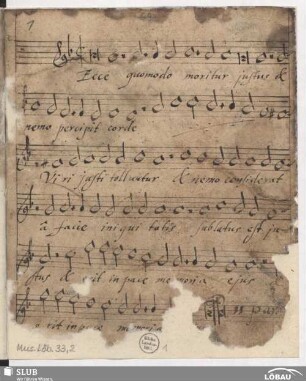 1
Ecce quomodo moritur justus &
nemo percipit corde
Viri justi tolluntur & nemo considerat
à facie ini qui tatis sublatus est ju
stus & erit in pace me moria ejus
& erit in pace memoria
Mus. Löb. 33,2
1
SLUB
Wir führen Wissen.
LÖBAU